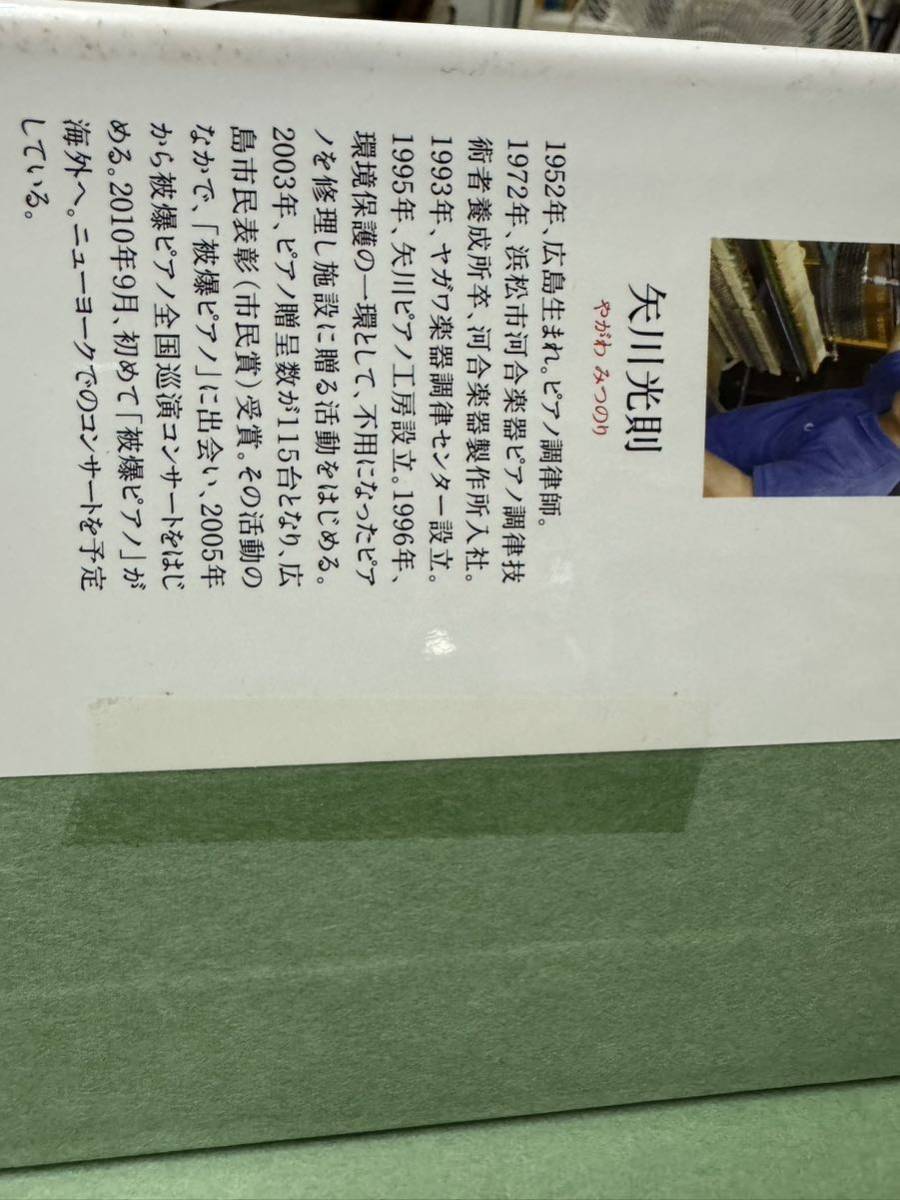 矢川光則
やがわ みつのり
1952年、広島生まれ。ピアノ調律師。
1972年、浜松市河合楽器ピアノ調律技
術者養成所卒、河合楽器製作所入社。
1993年、ヤガワ楽器調律センター設立。
1995年、矢川ピアノ工房設立。1996年、
環境保護の一環として、不用になったピア
ノを修理し施設に贈る活動をはじめる。
2003年、ピアノ贈呈数が115台となり、広
島市民表彰(市民賞)受賞。その活動の
なかで、「被爆ピアノ」に出会い、2005年
から被爆ピアノ全国巡演コンサートをはじ
める。2010年9月、初めて「被爆ピアノ」が
海外へ。ニューヨークでのコンサートを予定
している。